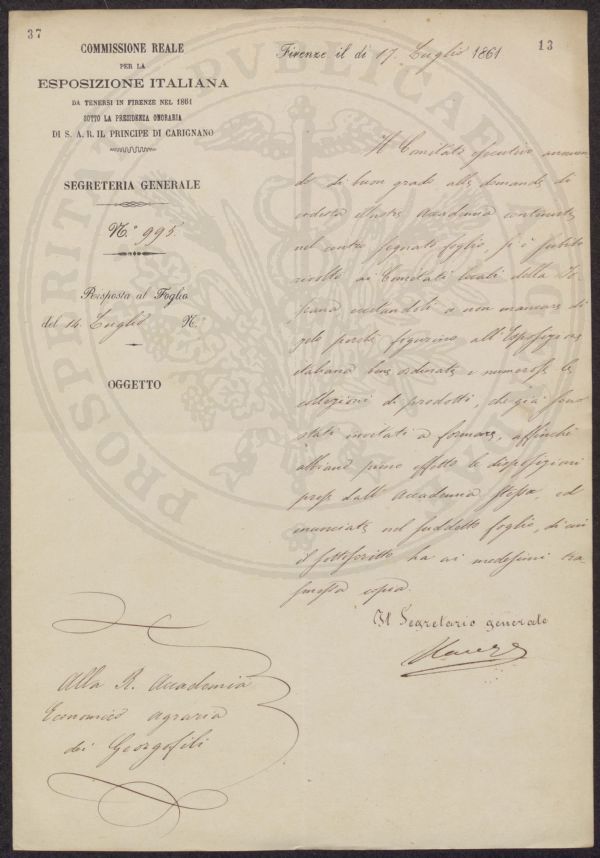 37
13
COMMISSIONE REALE
PER LA
ESPOSIZIONE ITALIANA
DA TENERSI IN FIRENZE NEL 1861
SOTTO LA PRESIDENZA ONORARIA
DI S. A. R. IL PRINCIPE DI CARIGNANO
SEGRETERIA GENERALE
N.° 995.
Risposta al Foglio
del 14. Luglio N.°
OGGETTO
Firenze il dì 17. Luglio 1861
Il Comitato esecutivo annuen
do di buon grado alla domanda di
codesta illustre Accademia contenuta
nel contro segnato foglio, si è subito
rivolto ai Comitati locali della To
scana eccitandoli a non mancare di
zelo perchè figurino all'Esposizione
italiana bene ordinate e numerose le
collezioni di prodotti, che già sono
stati invitati a formare, affinchè
abbiano pieno effetto le disposizioni
prese dall'Accademia stessa, ed
enunciate nel suddetto foglio, di cui
il sottoscritto ha ai medesimi tra
smessa copia.
Il Segretario generale
Alla R. Accademia
Economico Agraria
dei Georgofili
PROSPERITATI PUBLICAE AUGENDAE